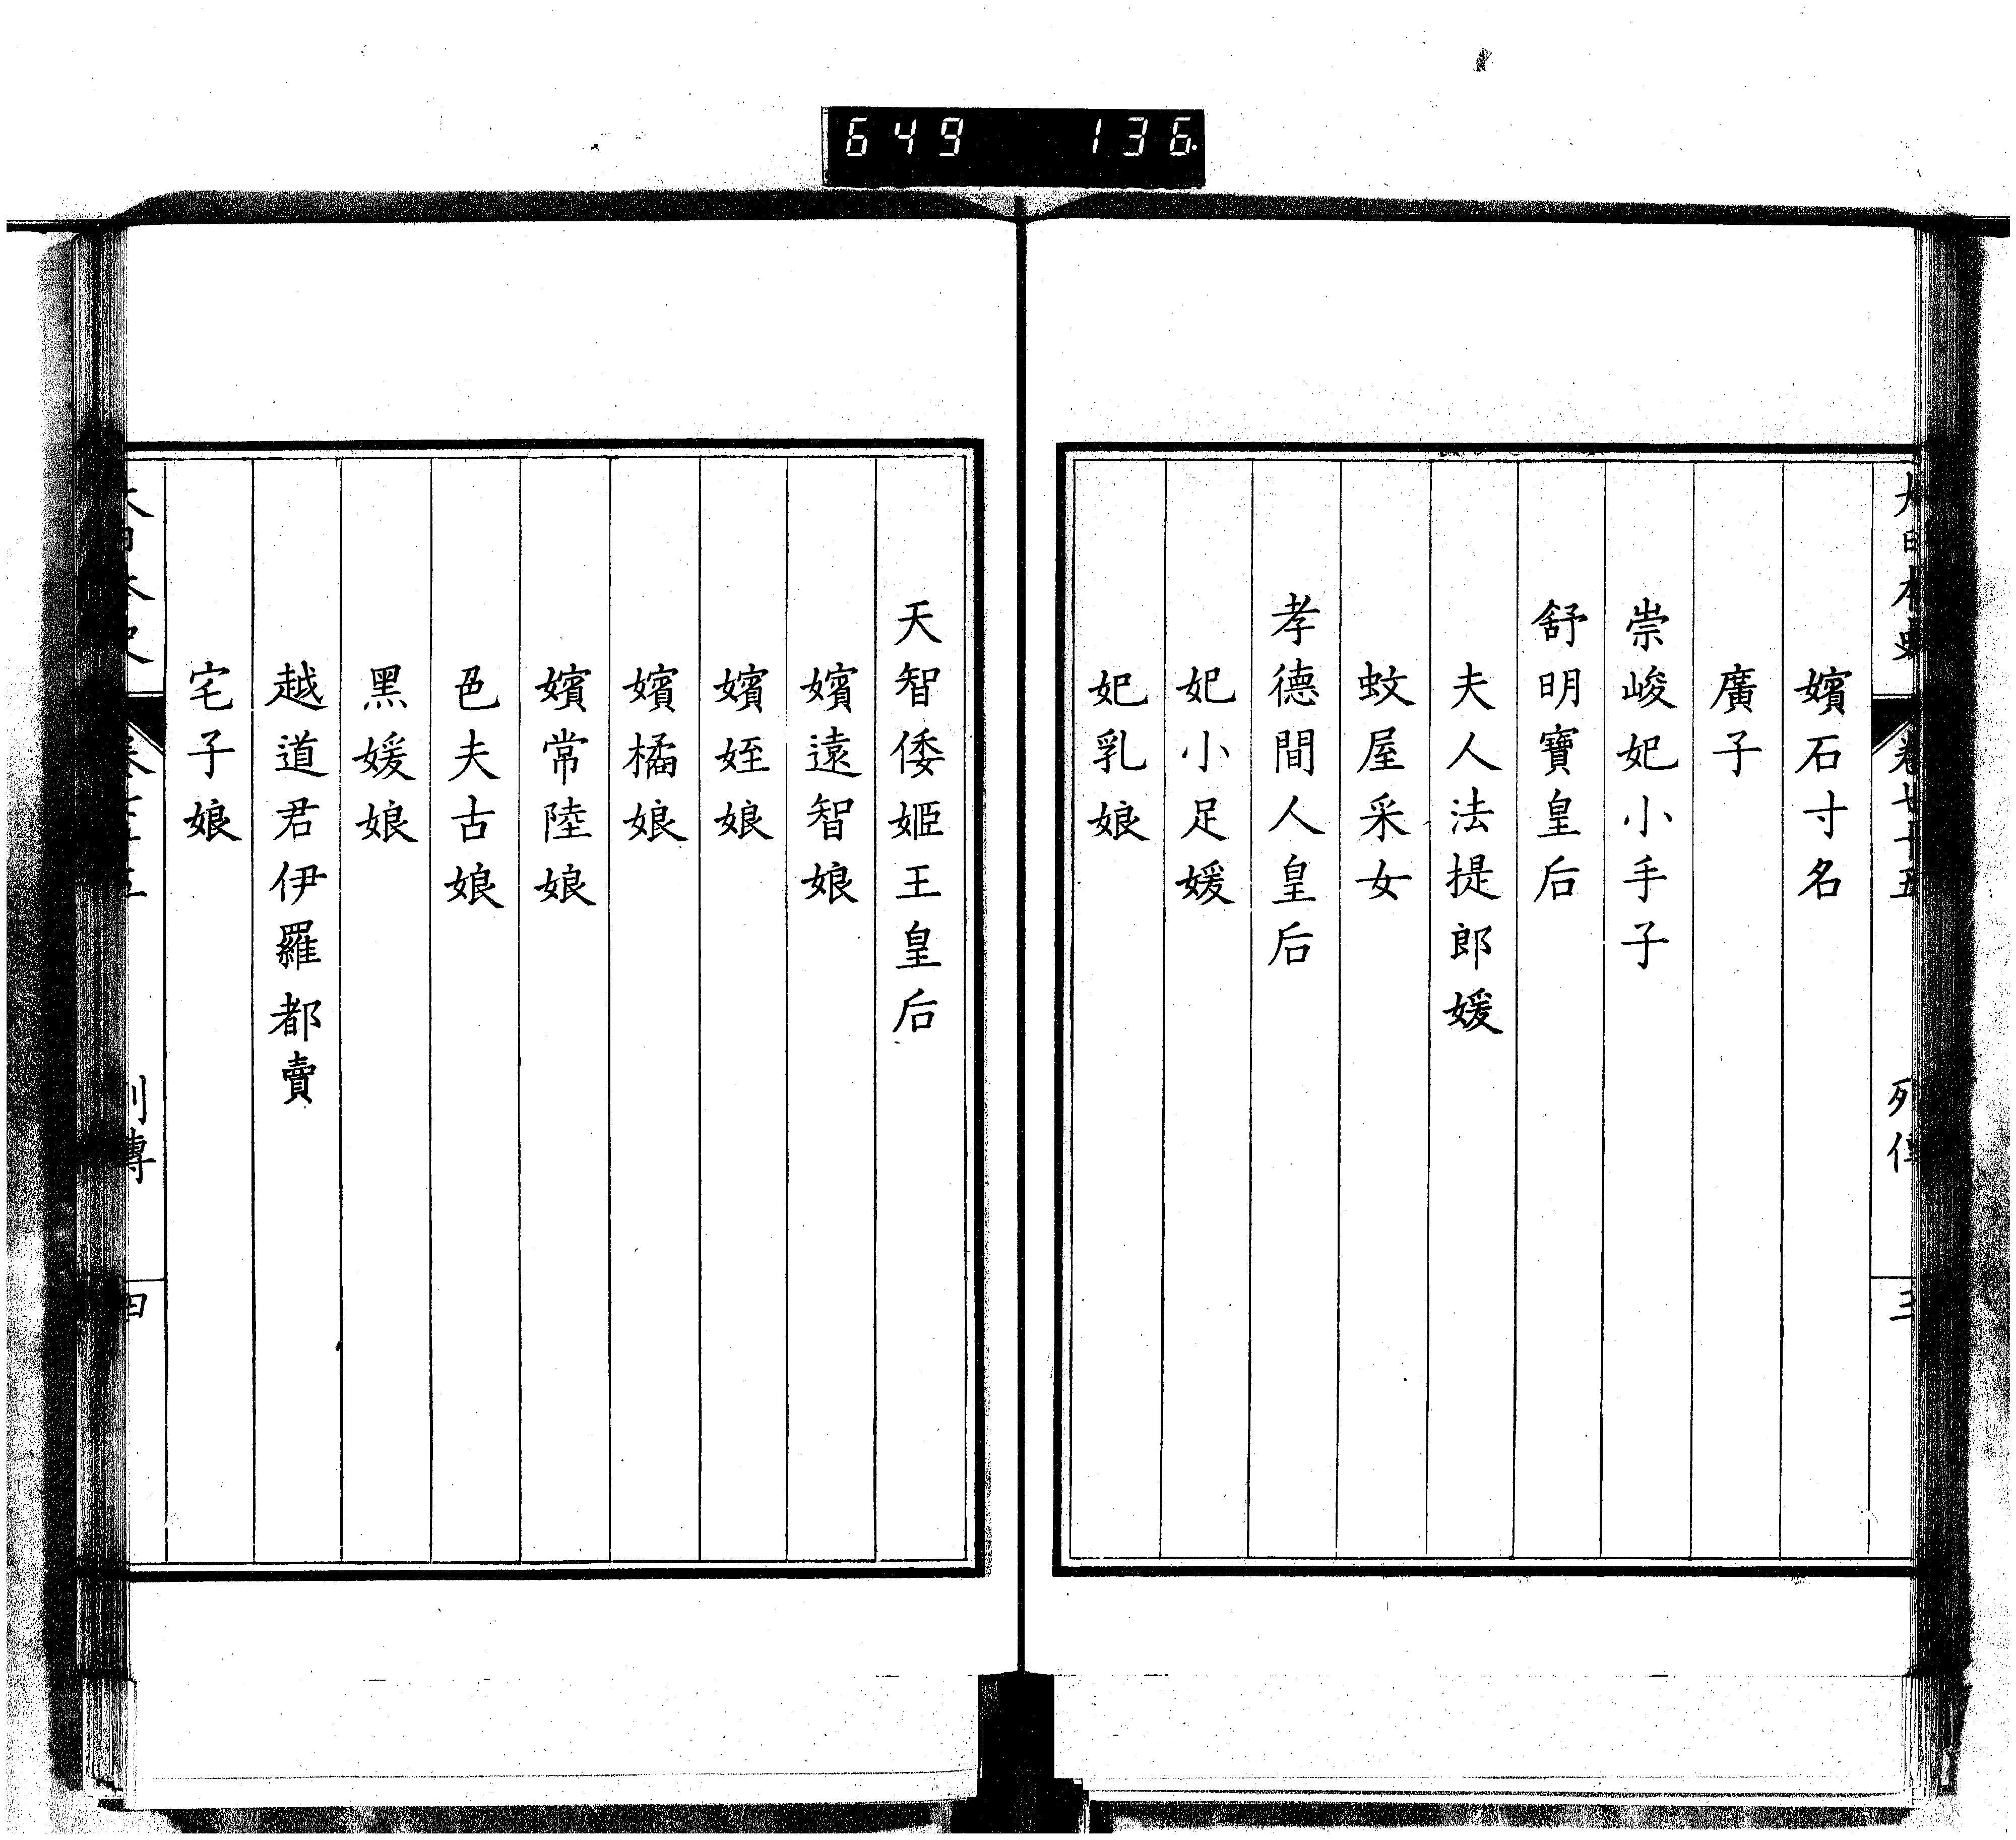 649 136
大日本史 卷七十五 列傳 三
嬪石寸名
廣子
崇峻妃小手子
舒明寶皇后
夫人法提郎媛
蚊屋采女
孝德間人皇后
妃小足媛
妃乳娘
天智倭姬王皇后
嬪遠智娘
嬪姪娘
嬪橘娘
嬪常陸娘
色夫古娘
黑媛娘
越道君伊羅都賣
宅子娘